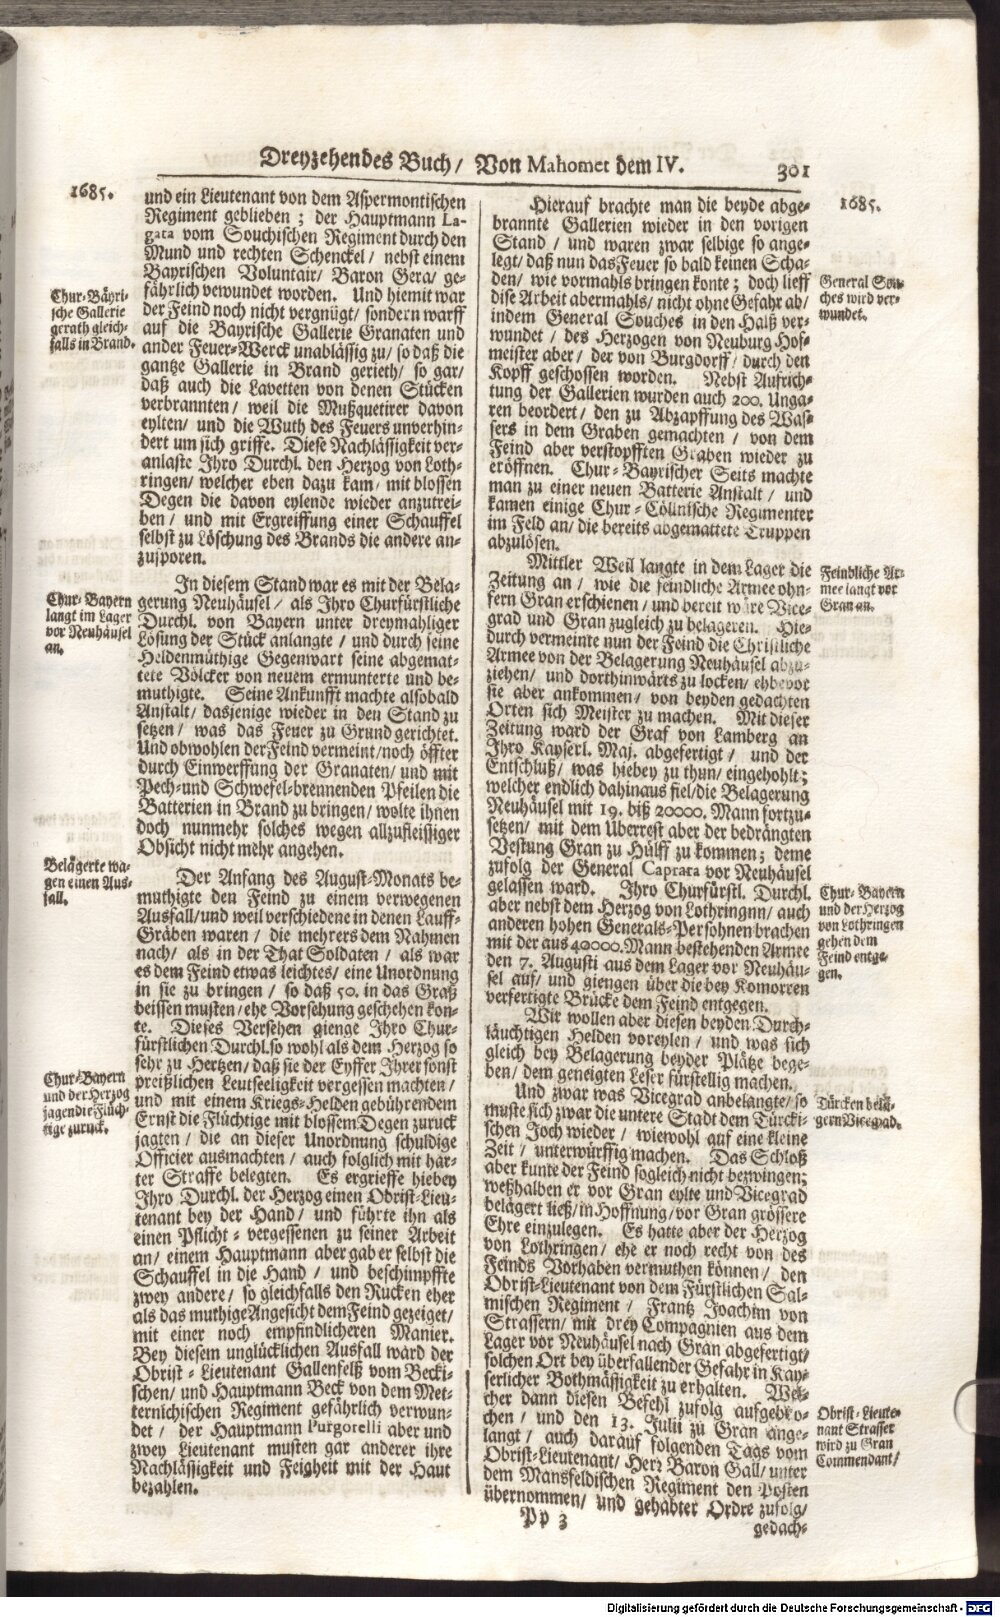 Dreyzehendes Buch/ Von Mahomet dem IV.
301
1685.
und ein Lieutenant von dem Aspermontischen
Regiment geblieben; der Hauptmann La-
gata vom Souchischen Regiment durch den
Mund und rechten Schenckel/ nebst einem
Bayrischen Voluntair/ Baron Gera/ ge-
fährlich vewundet worden. Und hiemit war
der Feind noch nicht vergnügt/ sondern warff
auf die Bayrische Gallerie Granaten und
ander Feuer-Werck unablässig zu/ so daß die
gantze Gallerie in Brand gerieth/ so gar/
daß auch die Lavetten von denen Stücken
verbrannten/ weil die Mußquetirer davon
eylten/ und die Wuth des Feuers unverhin-
dert um sich griffe. Diese Nachlässigkeit ver-
anlaste Ihro Durchl. den Herzog von Loth-
ringen/ welcher eben dazu kam/ mit blossen
Degen die davon eylende wieder anzutrei-
ben/ und mit Ergreiffung einer Schauffel
selbst zu Löschung des Brands die andere an-
zusporen.
Chur-Bäyri-
sche Gallerie
gerath gleich-
falls in Brand.
In diesem Stand war es mit der Bela-
gerung Neuhäusel/ als Ihro Churfürstliche
Durchl. von Bayern unter dreymahliger
Lösung der Stück anlangte/ und durch seine
Heldenmüthige Gegenwart seine abgemat-
tete Völcker von neuem ermunterte und be-
muthigte. Seine Ankunfft machte alsobald
Anstalt/ dasjenige wieder in den Stand zu
setzen/ was das Feuer zu Grund gerichtet.
Und obwohlen der Feind vermeint/ noch öffter
durch Einwerffung der Granaten/ und mit
Pech-und Schwefel-brennenden Pfeilen die
Batterien in Brand zu bringen/ wolte ihnen
doch nunmehr solches wegen allzufleissiger
Obsicht nicht mehr angehen.
Chur-Bayern
langt im Lager
vor Neuhäusel
an.
Der Anfang des August-Monats be-
muthigte den Feind zu einem verwegenen
Ausfall/ und weil verschiedene in denen Lauff-
Gräben waren/ die mehrers dem Nahmen
nach/ als in der That Soldaten/ als war
es dem Feind etwas leichtes/ eine Unordnung
in sie zu bringen/ so daß 50. in das Graß
beissen musten/ ehe Vorsehung geschehen kon-
te. Dieses Versehen gienge Ihro Chur-
fürstlichen Durchl. so wohl als dem Herzog so
sehr zu Hertzen/ daß sie der Eyffer Ihrer sonst
preißlichen Leutseeligkeit vergessen machten/
und mit einem Kriegs-Helden gebührendem
Ernst die Flüchtige mit blossem Degen zuruck
jagten/ die an dieser Unordnung schuldige
Officier ausmachten/ auch folglich mit har-
ter Straffe belegten. Es ergrieffe hiebey
Ihro Durchl. der Herzog einen Obrist-Lieu-
tenant bey der Hand/ und führte ihn als
einen Pflicht-vergessenen zu seiner Arbeit
an/ einem Hauptmann aber gab er selbst die
Schauffel in die Hand/ und beschimpffte
zwey andere/ so gleichfalls den Rucken eher
als das muthige Angesicht dem Feind gezeiget/
mit einer noch empfindlicheren Manier.
Bey diesem unglücklichen Ausfall ward der
Obrist-Lieutenant Gallenfelß vom Becki-
schen/ und Hauptmann Beck von dem Met-
ternichischen Regiment gefährlich verwun-
det/ der Hauptmann Purgorelli aber und
zwey Lieutenant musten gar anderer ihre
Nachlässigkeit und Feigheit mit der Haut
bezahlen.
Belägerte wa-
gen einen Aus-
fall.
Chur-Bayern
und der Herzog
jagen die Flüch-
tige zuruck.
Hierauf brachte man die beyde abge-
brannte Gallerien wieder in den vorigen
Stand/ und waren zwar selbige so ange-
legt/ daß nun das Feuer so bald keinen Scha-
den/ wie vormahls bringen konte; doch lieff
dise Arbeit abermahls/ nicht ohne Gefahr ab/
indem General Souches in den Halß ver-
wundet/ des Herzogen von Neuburg Hof-
meister aber/ der von Burgdorff/ durch den
Kopff geschossen worden. Nebst Aufrich-
tung der Gallerien wurden auch 200. Unga-
ren beordert/ den zu Abzapffung des Was-
sers in dem Graben gemachten/ von dem
Feind aber verstopfften Graben wieder zu
eröffnen. Chur-Bayrischer Seits machte
man zu einer neuen Batterie Anstalt/ und
kamen einige Chur-Cöllnische Regimenter
im Feld an/ die bereits abgemattete Truppen
abzulösen.
1685.
General Sou-
ches wird ver-
wundet.
Mittler Weil langte in dem Lager die
Zeitung an/ wie die feindliche Armee ohn-
fern Gran erschienen/ und bereit wäre Vice-
grad und Gran zugleich zu belageren. Hie-
durch vermeinte nun der Feind die Christliche
Armee von der Belagerung Neuhäusel abzu-
ziehen/ und dorthinwärts zu locken/ ehbevor
sie aber ankommen/ von beyden gedachten
Orten sich Meister zu machen. Mit dieser
Zeitung ward der Graf von Lamberg an
Ihro Kayserl. Maj. abgefertigt/ und der
Entschluß/ was hiebey zu thun/ eingehohlt;
welcher endlich dahinaus fiel/ die Belagerung
Neuhäusel mit 19. biß 20000. Mann fortzu-
setzen/ mit dem Überrest aber der bedrängten
Vestung Gran zu Hülff zu kommen; deme
zufolg der General Caprara vor Neuhäusel
gelassen ward. Ihro Churfürstl. Durchl.
aber nebst dem Herzog von Lothringnn/ auch
anderen hohen Generals-Persohnen brachen
mit der aus 40000. Mann bestehenden Armee
den 7. Augusti aus dem Lager vor Neuhäu-
sel auf/ und giengen über die bey Komorren
verfertigte Brücke dem Feind entgegen.
Feindliche Ar-
mee langt vor
Gran an.
Chur-Bayern
und der Herzog
von Lothringen
gehen dem
Feind entge-
gen.
Wir wollen aber diesen beyden Durch-
läuchtigen Helden voreylen/ und was sich
gleich bey Belagerung beyder Plätze bege-
ben/ dem geneigten Leser fürstellig machen.
Und zwar was Vicegrad anbelangte/ so
muste sich zwar die untere Stadt dem Türcki-
schen Joch wieder/ wiewohl auf eine kleine
Zeit/ unterwürffig machen. Das Schloß
aber kunte der Feind sogleich nicht bezwingen;
weßhalben er vor Gran eylte und Vicegrad
belägert ließ/ in Hoffnung/ vor Gran grössere
Ehre einzulegen. Es hatte aber der Herzog
von Lothringen/ ehe er noch recht von des
Feinds Vorhaben vermuthen können/ den
Obrist-Lieutenant von dem Fürstlichen Sal-
mischen Regiment/ Frantz Joachim von
Strassern/ mit drey Compagnien aus dem
Lager vor Neuhäusel nach Gran abgefertigt/
solchen Ort bey überfallender Gefahr in Kay-
serlicher Bothmässigkeit zu erhalten. Wel-
cher dann diesen Befehl zufolg aufgebro-
chen/ und den 13. Julii zu Gran ange-
langt/ auch darauf folgenden Tags vom
Obrist-Lieutenant/ Herz Baron Gall/ unter
dem Mansfeldischen Regiment den Posten
übernommen/ und gehabter Ordre zufolg/
Türcken belä-
gern Vicegrad.
Obrist-Lieute-
nant Strasser
wird zu Gran
Commendant/
Pp 3
gedach-
Digitalisierung gefördert durch die Deutsche Forschungsgemeinschaft - DFG